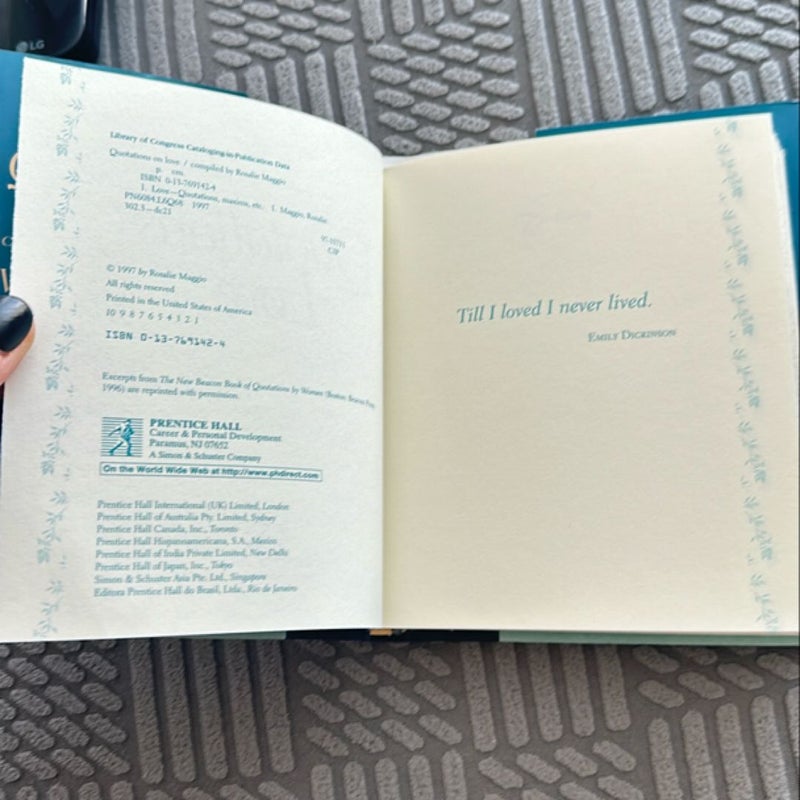 LG
Library of Congress Cataloging-in-Publication Data
Quotations on love / compiled by Rosalie Maggio
p. cm.
ISBN 0-13-769142-4
1. Love—Quotations, maxims, etc. I. Maggio, Rosalie.
PN6084.L6Q68 1997
302.3—dc21
CIP
© 1997 by Rosalie Maggio
All rights reserved
Printed in the United States of America
10 9 8 7 6 5 4 3 2 1
ISBN 0-13-769142-4
Excerpts from The New Beacon Book of Quotations by Women (Boston: Beacon Press,
1996) are reprinted with permission.
PRENTICE HALL
Career & Personal Development
Paramus, NJ 07652
A Simon & Schuster Company
On the World Wide Web at http://www.phdirect.com
Prentice Hall International (UK) Limited, London
Prentice Hall of Australia Pty. Limited, Sydney
Prentice Hall Canada, Inc., Toronto
Prentice Hall Hispanoamericana, S.A., Mexico
Prentice Hall of India Private Limited, New Delhi
Prentice Hall of Japan, Inc., Tokyo
Simon & Schuster Asia Pte. Ltd., Singapore
Editora Prentice Hall do Brasil, Ltda., Rio de Janeiro
Till I loved I never lived.
EMILY DICKINSON